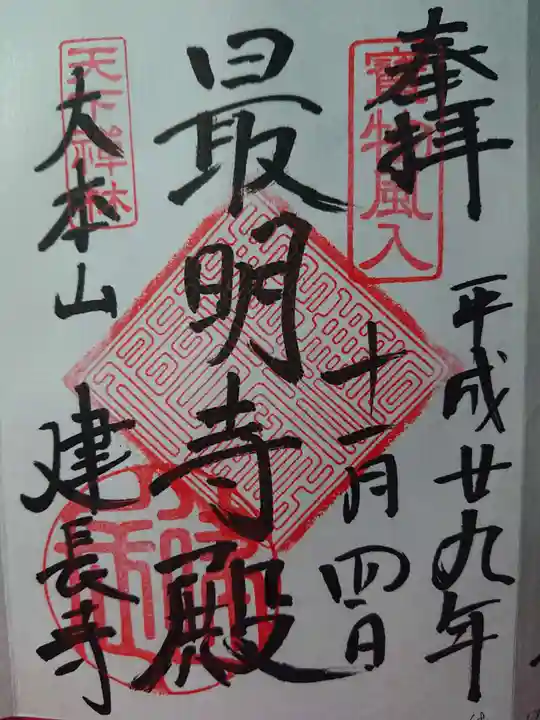 奉拝
寶物風入
平成廿九年
十一月四日
最明寺殿
天下禅林
大本山 建長寺